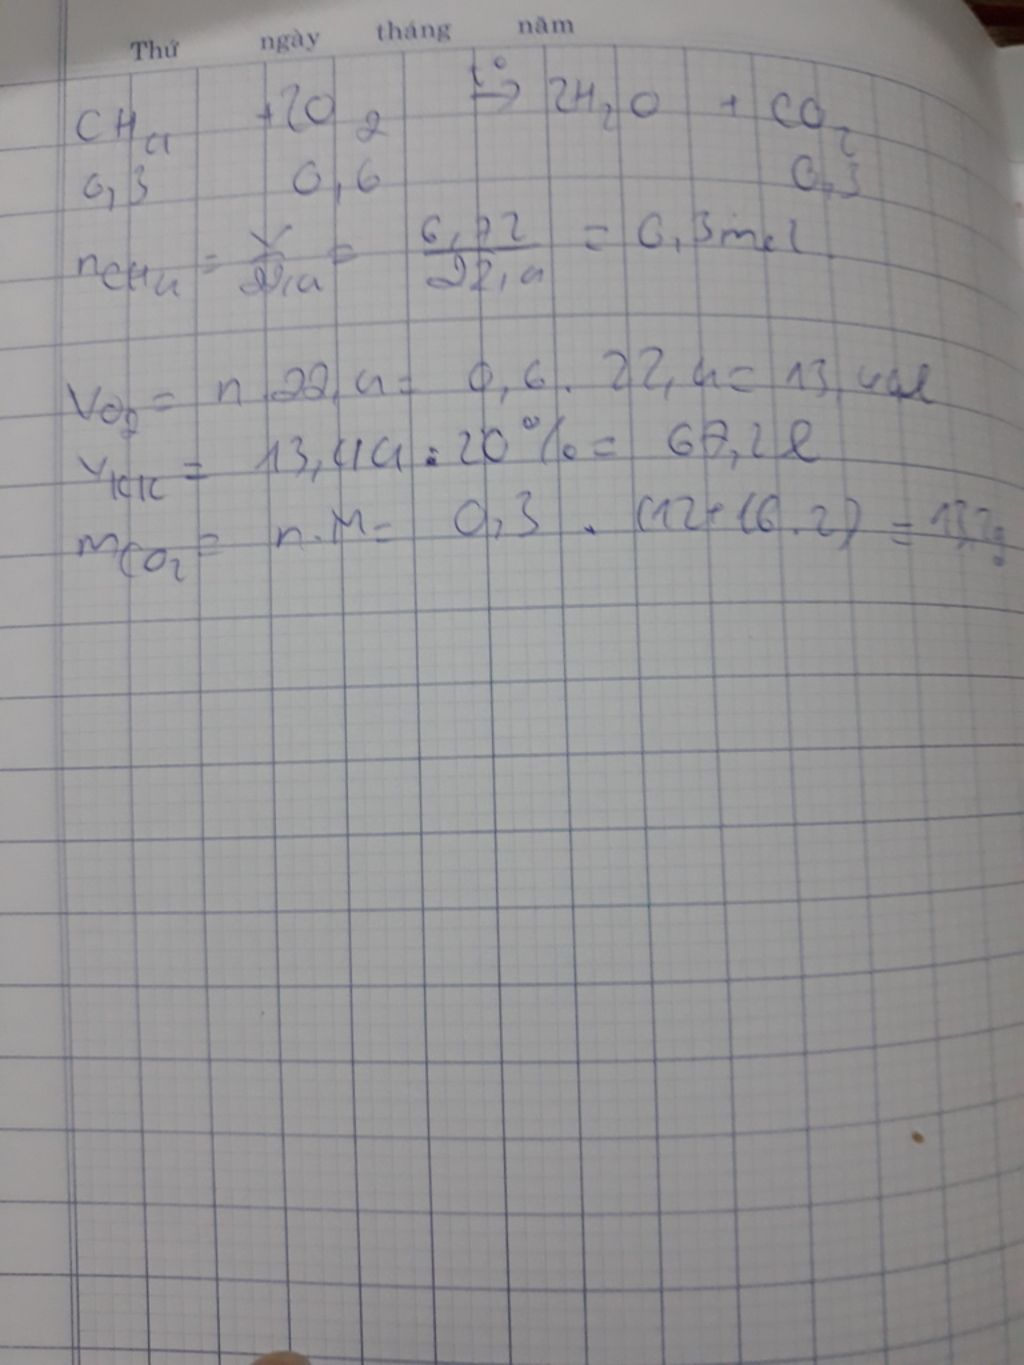 Thứ ngày tháng năm
CH₄ + 2O₂ t°→ 2H₂O + CO₂
0,3 0,6 0,3
nCH₄ = V/22,4 = 6,72/22,4 = 0,3 mol
VO₂ = n.22,4 = 0,6 . 22,4 = 13,44l
VKK = 13,44 : 20% = 67,2l
mCO₂ = n.M = 0,3 . (12+16.2) = 13,2g